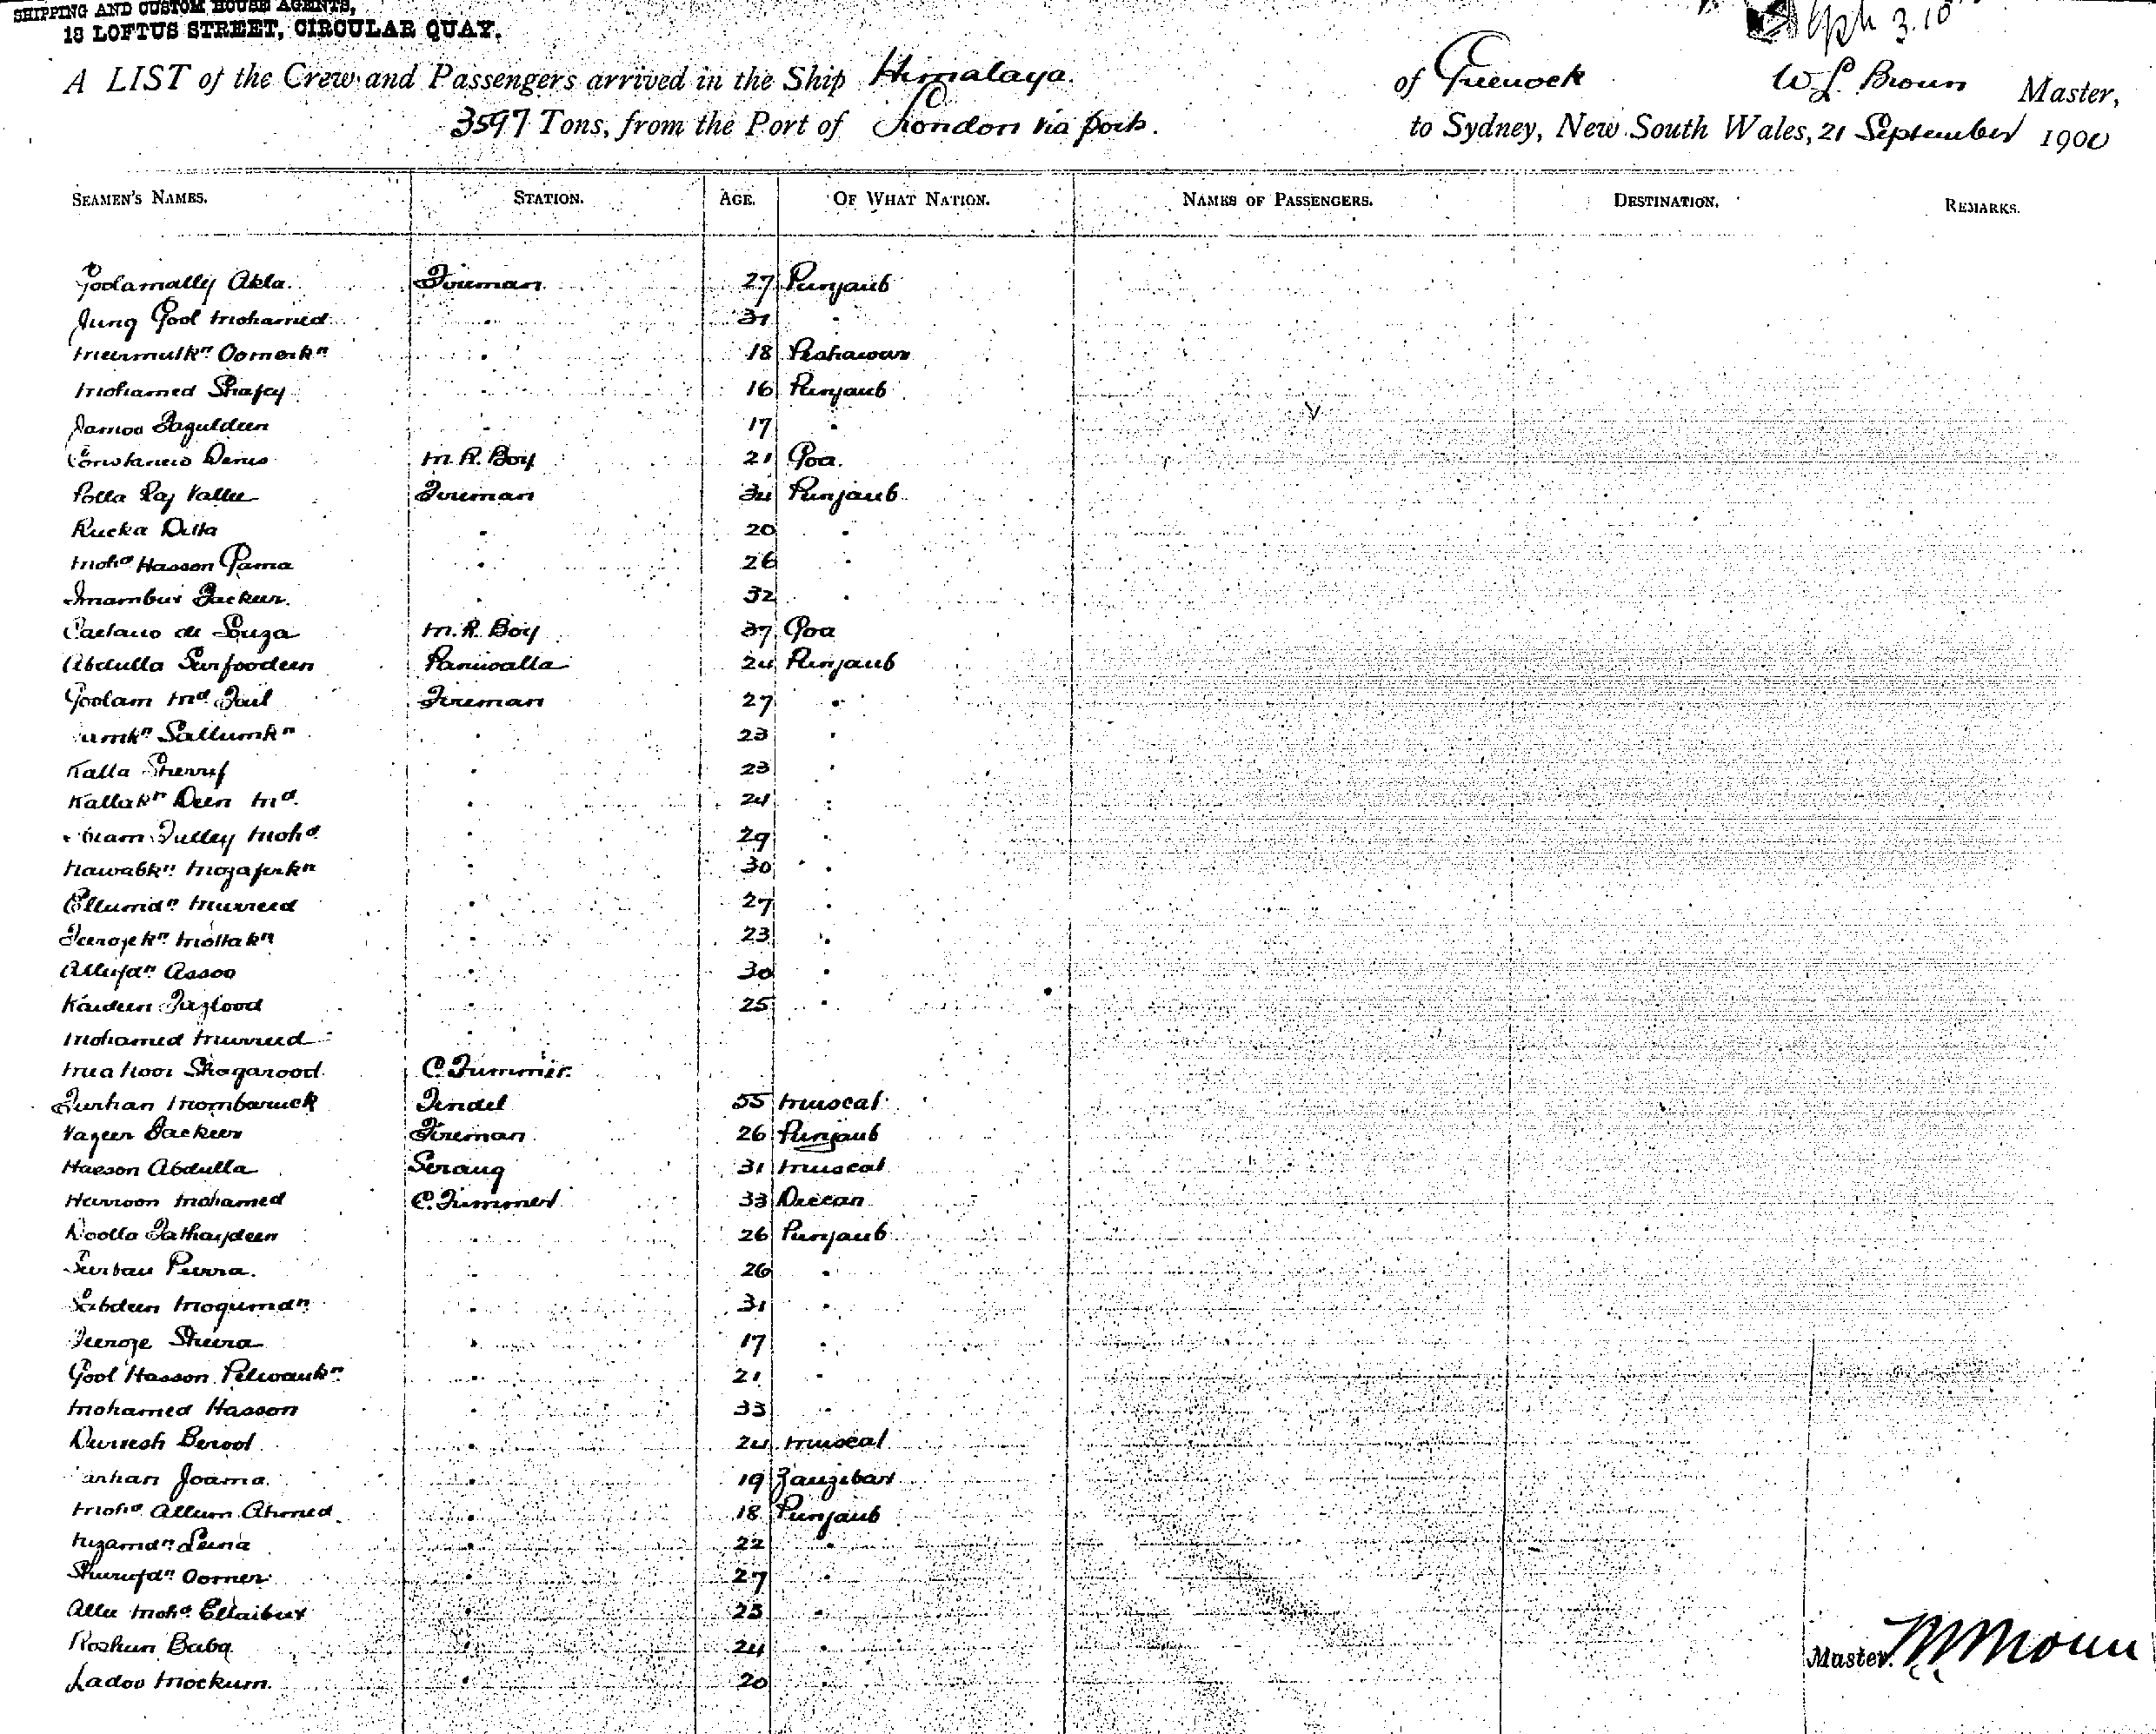 SHIPPING AND CUSTOM HOUSE AGENTS,
18 LOFTUS STREET, CIRCULAR QUAY.
3.10
A LIST of the Crew and Passengers arrived in the Ship Himalaya of Greenock W. L. Broun Master,
3597 Tons, from the Port of London via ports. to Sydney, New South Wales, 21 September 1900
SEAMEN'S NAMES. STATION. AGE. OF WHAT NATION. NAMES OF PASSENGERS. DESTINATION. REMARKS.
Golamally Akla. Fireman 27 Punjaub
Jung Gool Mohamed " 31 "
Meermulkn Oomerkn " 18 Peshawar
Mohamed Shafey " 16 Punjaub
Jamoo Jaguldeen " 17 "
Constancio Denis M. R. Boy 21 Goa.
Polla Raj Vallee Fireman 34 Punjaub
Rucka Ditta " 20 "
Mohd Hasson Gama " 26 "
Imambux Fackeer. " 32 "
Caetano de Souza M. R. Boy 37 Goa
Abdulla Surfoodeen Paniwalla 24 Punjaub
Goolam Md. Fail Fireman 27 "
Sallumkn " 23 "
Kalla Sherruf " 23 "
Kallakn Deen Md. " 24 "
Fulley Mohd " 29 "
Nawabkn Mozaferkn " 30 "
Ellumdn Murreed " 27 "
Feerojekn Mollakn " 23 "
Allufdn Assoo " 30 "
Kaideen Fuzlood " 25 "
Mohamed Murreed "
Mea Noor Shagarood C. Trimmer.
Furhan Mombaruck Tindel 55 Muscat
Vazeer Fackeer Fireman 26 Punjaub
Hasson Abdulla Serang 31 Muscat
Harroon Mohamed C. Trimmer 33 Deccan
Doolla Fathaydeen " 26 Punjaub
Surbau Peera. " 26 "
Sabdeen Mogumdn " 31 "
Feeroze Sheera " 17 "
Gool Hasson Pelwaukn " 21 "
Mohamed Hasson " 33 "
Durvesh Berool " 24 Muscat
Joama. " 19 Zanzibar
Mohd Allum Ahmed " 18 Punjaub
Nizamdn Leena " 22 "
Shurufdn Oomer " 27 "
Allee Mohd Ellaibux " 23 "
Roshun Baba " 24 "
Ladoo Mockum. " 20 "
Master.